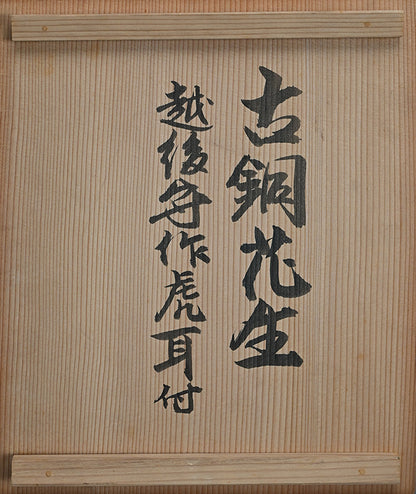 古銅花生
越後守作虎耳付